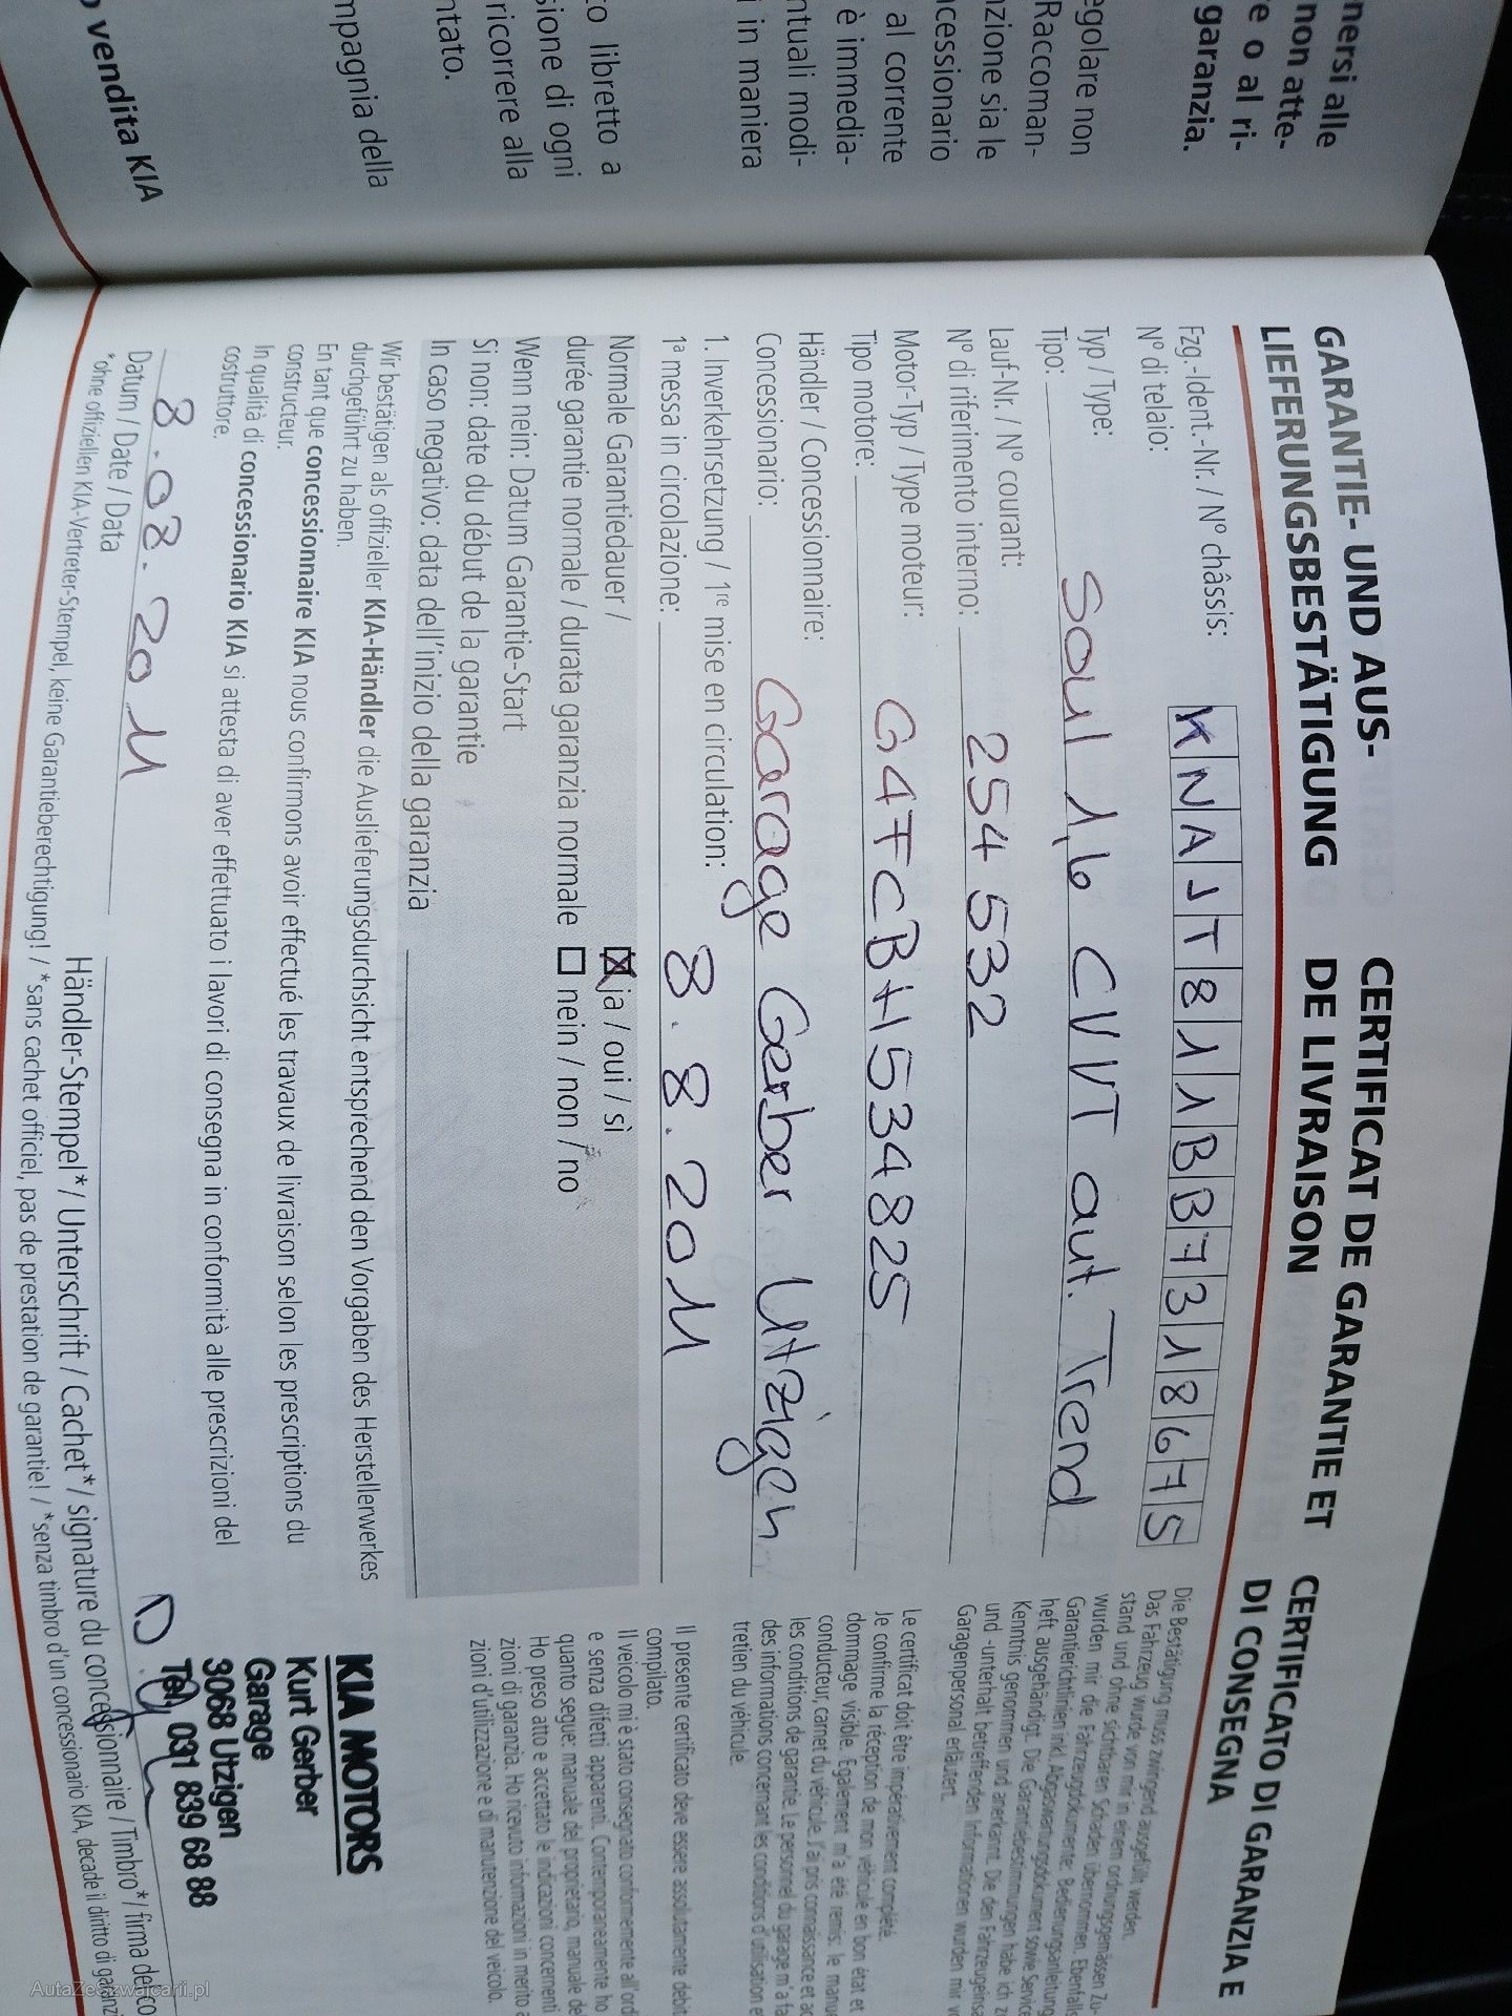 nersi alle
non atte-
e o al ri-
garanzia.
egolare non
Raccoman-
nzione sia le
ncessionario
al corrente
è immedia-
ntuali modi-
i in maniera
to libretto a
sione di ogni
ricorrere alla
ntato.
mpagnia della
o vendita KIA
GARANTIE- UND AUS-
LIEFERUNGSBESTÄTIGUNG
CERTIFICAT DE GARANTIE ET
DE LIVRAISON
CERTIFICATO DI GARANZIA E
DI CONSEGNA
Fzg.-Ident.-Nr. / Nº châssis:
Nº di telaio: KNAJT811BB7318675
Typ / Type:
Tipo: Soul 1,6 CVVT aut. Trend
Lauf-Nr. / Nº courant:
Nº di riferimento interno: 254 532
Motor-Typ / Type moteur:
Tipo motore: G4FCBH534825
Händler / Concessionnaire:
Concessionario: Garage Gerber Utzigen
1. Inverkehrsetzung / 1re mise en circulation:
1ª messa in circolazione: 8.8.2011
Normale Garantiedauer / ja / oui / sì
durée garantie normale / durata garanzia normale nein / non / no
Wenn nein: Datum Garantie-Start
Si non: date du début de la garantie
In caso negativo: data dell'inizio della garanzia
Wir bestätigen als offizieller KIA-Händler die Auslieferungsdurchsicht entsprechend den Vorgaben des Herstellerwerkes
durchgeführt zu haben.
En tant que concessionnaire KIA nous confirmons avoir effectué les travaux de livraison selon les prescriptions du
constructeur.
In qualità di concessionario KIA si attesta di aver effettuato i lavori di consegna in conformità alle prescrizioni del
costruttore.
8.08.2011
Datum / Date / Data
Händler-Stempel* / Unterschrift / Cachet* / signature du concessionnaire / Timbro* / firma del co
*ohne offiziellen KIA-Vertreter-Stempel, keine Garantieberechtigung! / *sans cachet officiel, pas de prestation de garantie! / *senza timbro d'un concessionario KIA, decade il diritto di garanz
Die Bestätigung muss zwingend ausgefüllt werden.
Das Fahrzeug wurde von mir in einem ordnungsgemässen Zu-
stand und ohne sichtbaren Schaden übernommen. Ebenfalls
wurden mir die Fahrzeugdokumente: Bedienungsanleitung
Garantierichtlinien inkl. Abgaswartungsdokument sowie Service
heft ausgehändigt. Die Garantiebestimmungen habe ich z
Kenntnis genommen und anerkannt. Die den Fahrzeugeinsa
und -unterhalt betreffenden Informationen wurden mir v
Garagenpersonal erläutert.
Le certificat doit être impérativement complété.
Je confirme la réception de mon véhicule en bon état et
dommage visible. Egalement m'a été remis: le manue
conducteur, carnet du véhicule. J'ai pris connaissance et ac
les conditions de garantie. Le personnel du garage m'a fa
des informations concernant les conditions d'utilisation e
tretien du véhicule.
Il presente certificato deve essere assolutamente debit
compilato.
Il veicolo mi è stato consegnato conformemente all'ord
e senza difetti apparenti. Contemporaneamente ho
quanto segue: manuale del proprietario, manuale de
Ho preso atto e accettato le indicazioni concernenti
zioni di garanzia. Ho ricevuto informazioni in merito a
zioni d'utilizzazione e di manutenzione del veicolo.
KIA MOTORS
Kurt Gerber
Garage
3068 Utzigen
Tel. 031 839 68 88
AutaZeSzwajcarii.pl